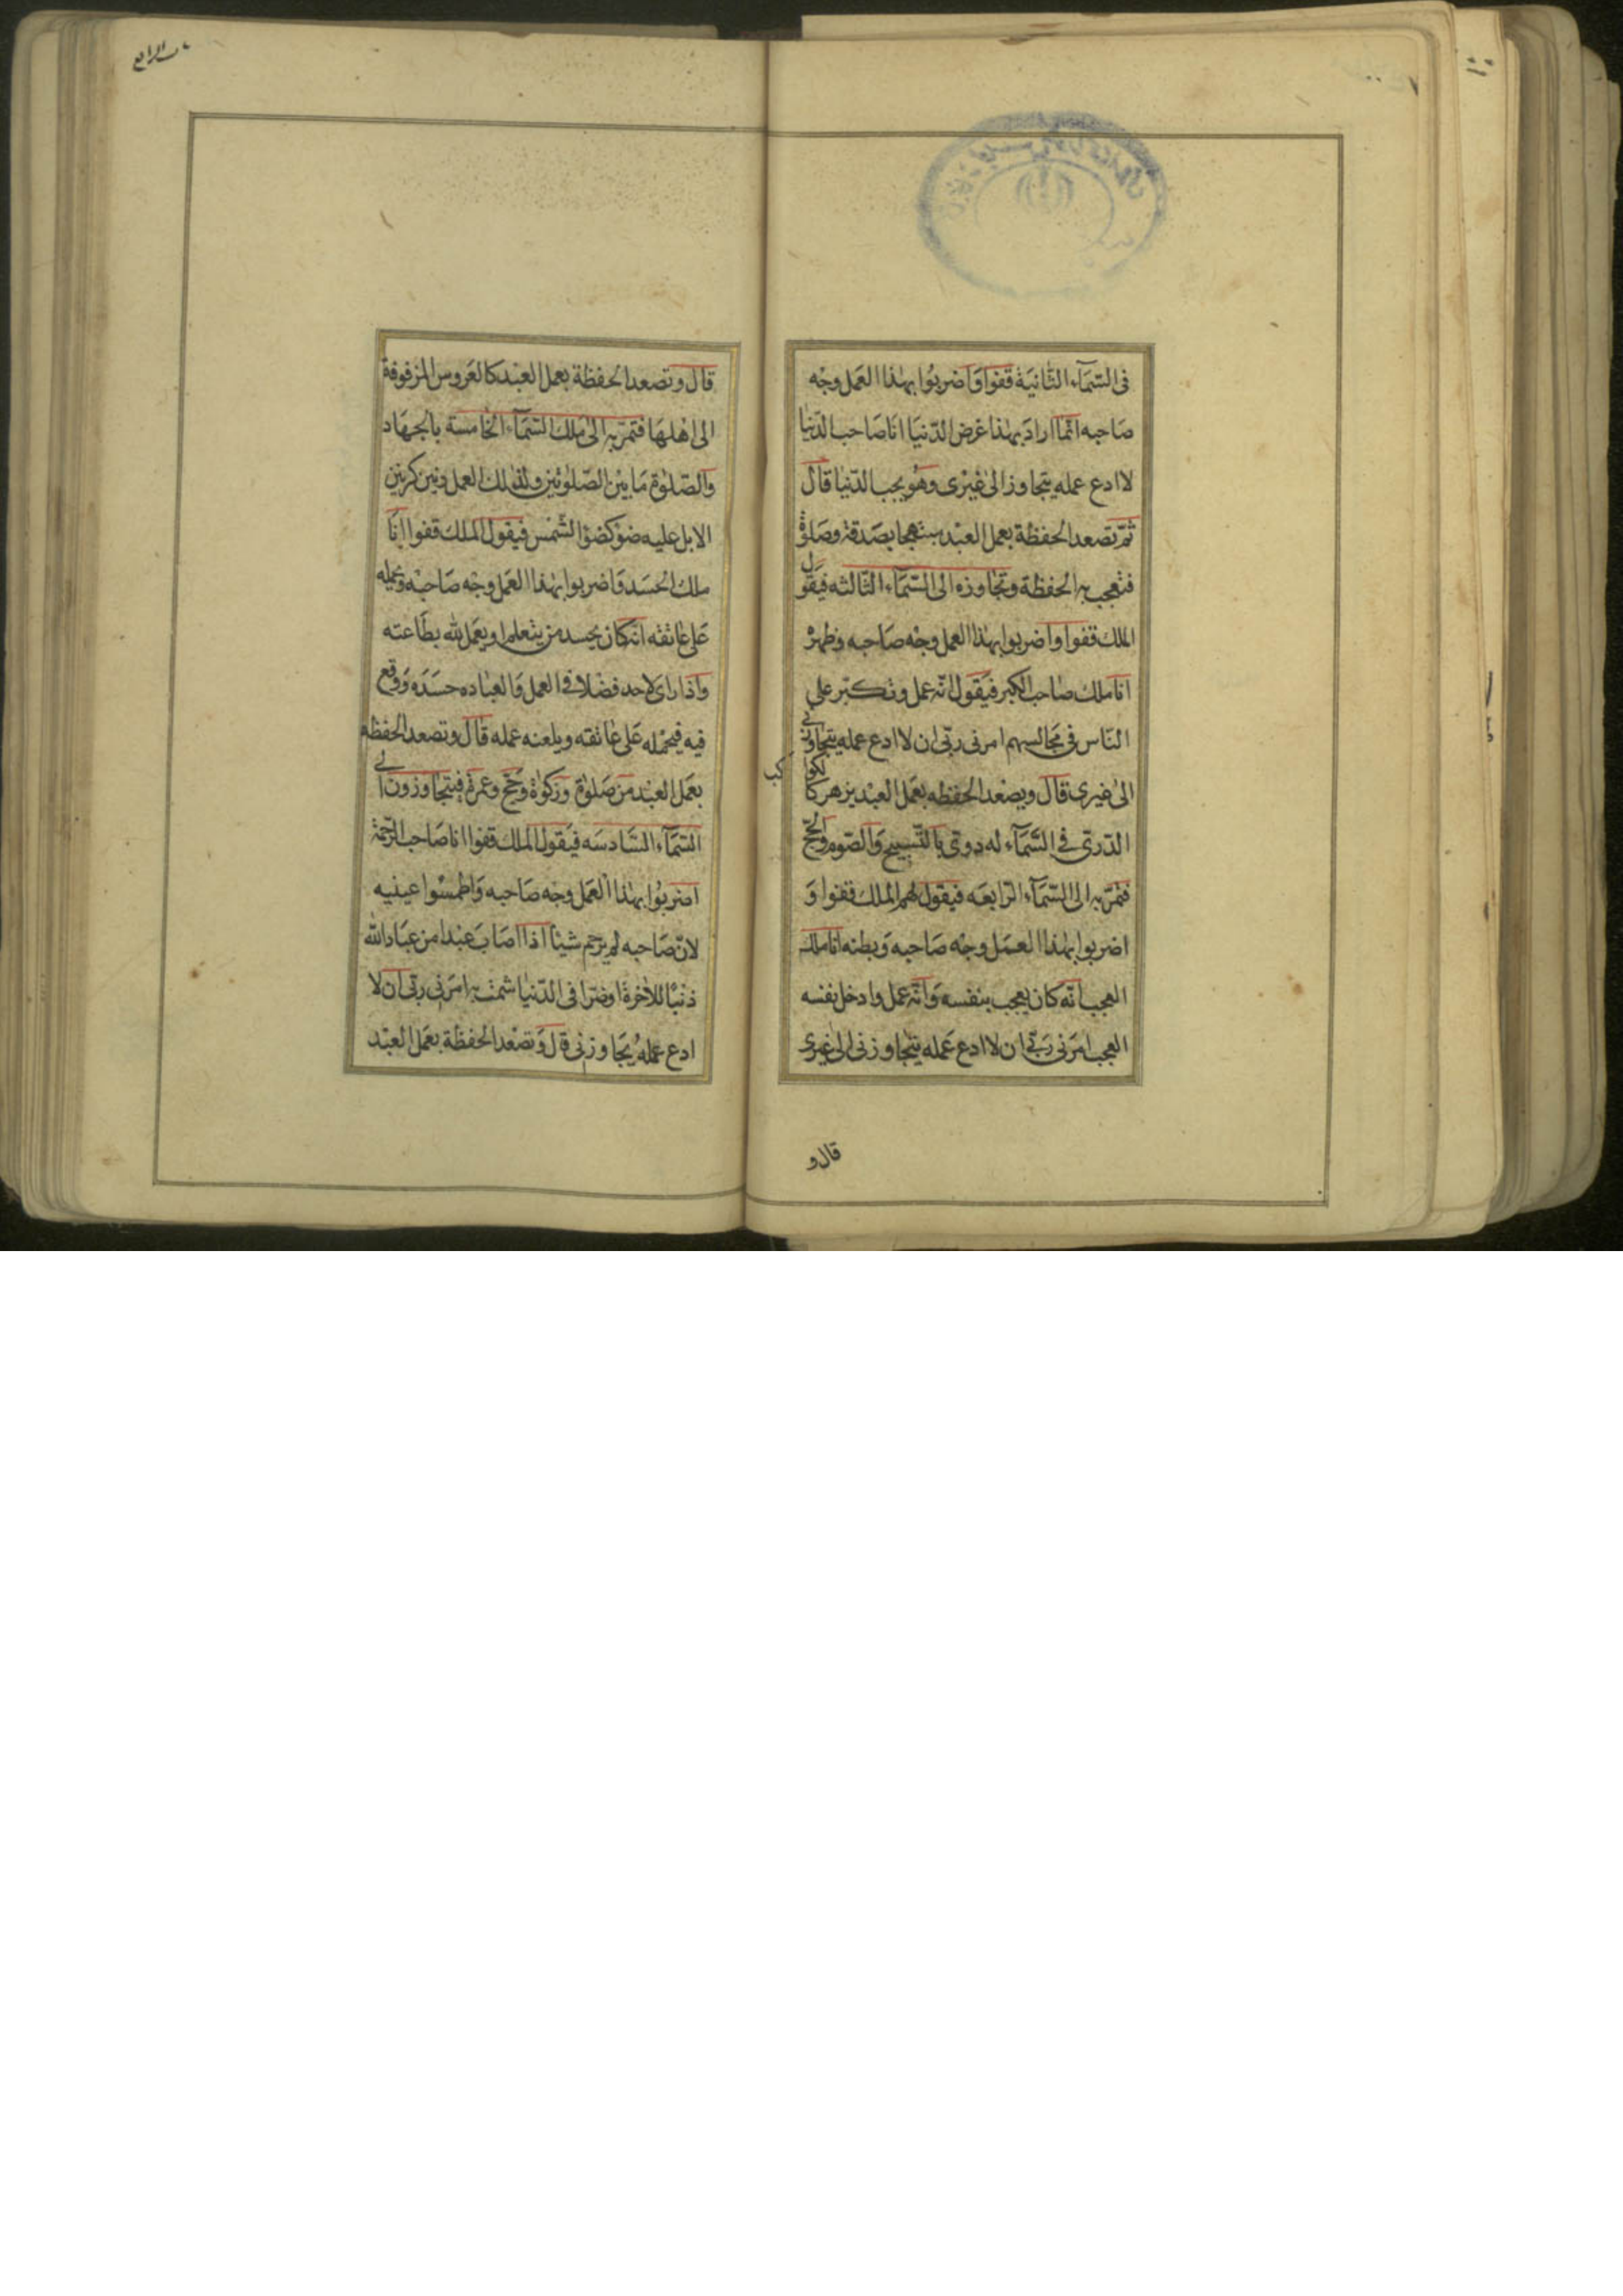 فى السّمآء الثّانية قفوا وَاضربُوا بهٰذا العَمل وجْه
صَاحبه انّما ارادَ بهٰذا عَرض الدّنيَا انَا صَاحب الدّنيٰا
لا ادع عمله يتجاوز الىٰ غيْرى وهُو يحب الدّنيٰا قال
ثمّ تصعد الحفظة بعمل العبْد مبتهجا بصَدقة وصَلوٰة
فتعجب به الحفظة وتجٰاوزه الى السّمآء الثّالثه فيَقول
الملك قفوا واضربوا بهٰذا العمل وجْه صَاحبه وظهرْ
انا ملك صٰاحب الكبر فيَقول انّه عمل وتكبّر على
النّاس فى مَجالسهم امرنى ربّى ان لا ادع عمله يتجاوزنى
الىٰ غيرى قال ويصْعد الحفظه بعَمل العبْد يزهر كالكوكب
الدّرىّ في السَّمَآء له دوىّ بالتّسبيح وَالصّوم والحجّ
فتمرّ به الى السّمَآء الرّابعَه فيقول لهم الملك قفوا وَ
اضربوا بهٰذا العمَل وجْه صَاحبه وَبطنه انا ملك
العجب انّه كان يعجب بنفسه وَانّه عمل وادخل نفسه
العجب امَرنى رَبّى ان لا ادع عَمله يتجٰاوزنى الىٰ غيرى
قال و
قال وتصعد الحفظة بعمل العبْد كالعَروس المزفوفة
الى اهْلهَا فتمرّ به الىٰ مَلك السّمَآء الخٰامسَة بالجهَاد
وَالصّلوٰة مَا بيْن الصّلوٰتين ولذلك العمل رنين كرنين
الابل عليه ضوْء كضوْء الشّمْس فيقول الملك قفوا انَا
ملك الحسَد وَاضربوا بهٰذا العَمل وجْه صَاحبه وَيحمله
عَلى عٰاتقه انّه كان يحسد من يتعلم او يعمَل لله بطَاعته
وَاذا راى لاحد فضْلا فى العمل وَالعبٰاده حسَدَه وَوقع
فيه فيحْمله عَلى عٰاتقه ويلعنه عَمله قال وتصعد الحفظة
بعَمل العبْد من صَلوٰة وزكوٰة وَحَجّ وعمرة فيتجٰاوزون الى
السّمَآء السَّادسَه فيَقول الملك قفوا انا صَاحب الرّحمة
اضربُوا بهٰذا العَمل وجه صَاحبه وَاطمسْوا عينيه
لانّ صَاحبه لم يرْحم شيئا اذا اصَابَ عبْدا من عبَاد الله
ذنبًا للاٰخرة او ضرّا فى الدّنيٰا شمت به امَرَنى ربّى ان لا
ادع عمله يُجَاوزنى قال وَتصْعد الحفظة بعَمل العبْد